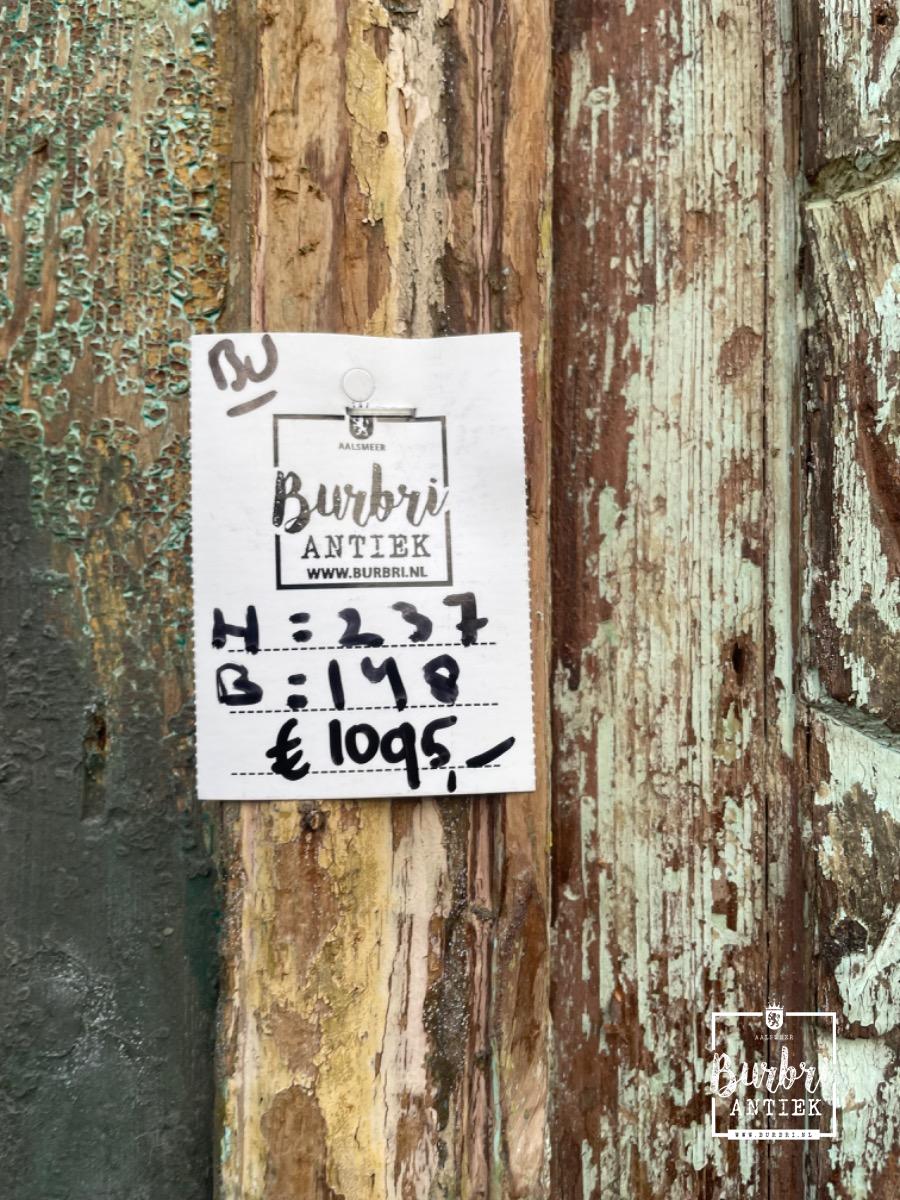 BU
AALSMEER
Burbri
ANTIEK
WWW.BURBRI.NL
H : 237
B : 148
€ 1095,-
AALSMEER
Burbri
ANTIEK
WWW.BURBRI.NL